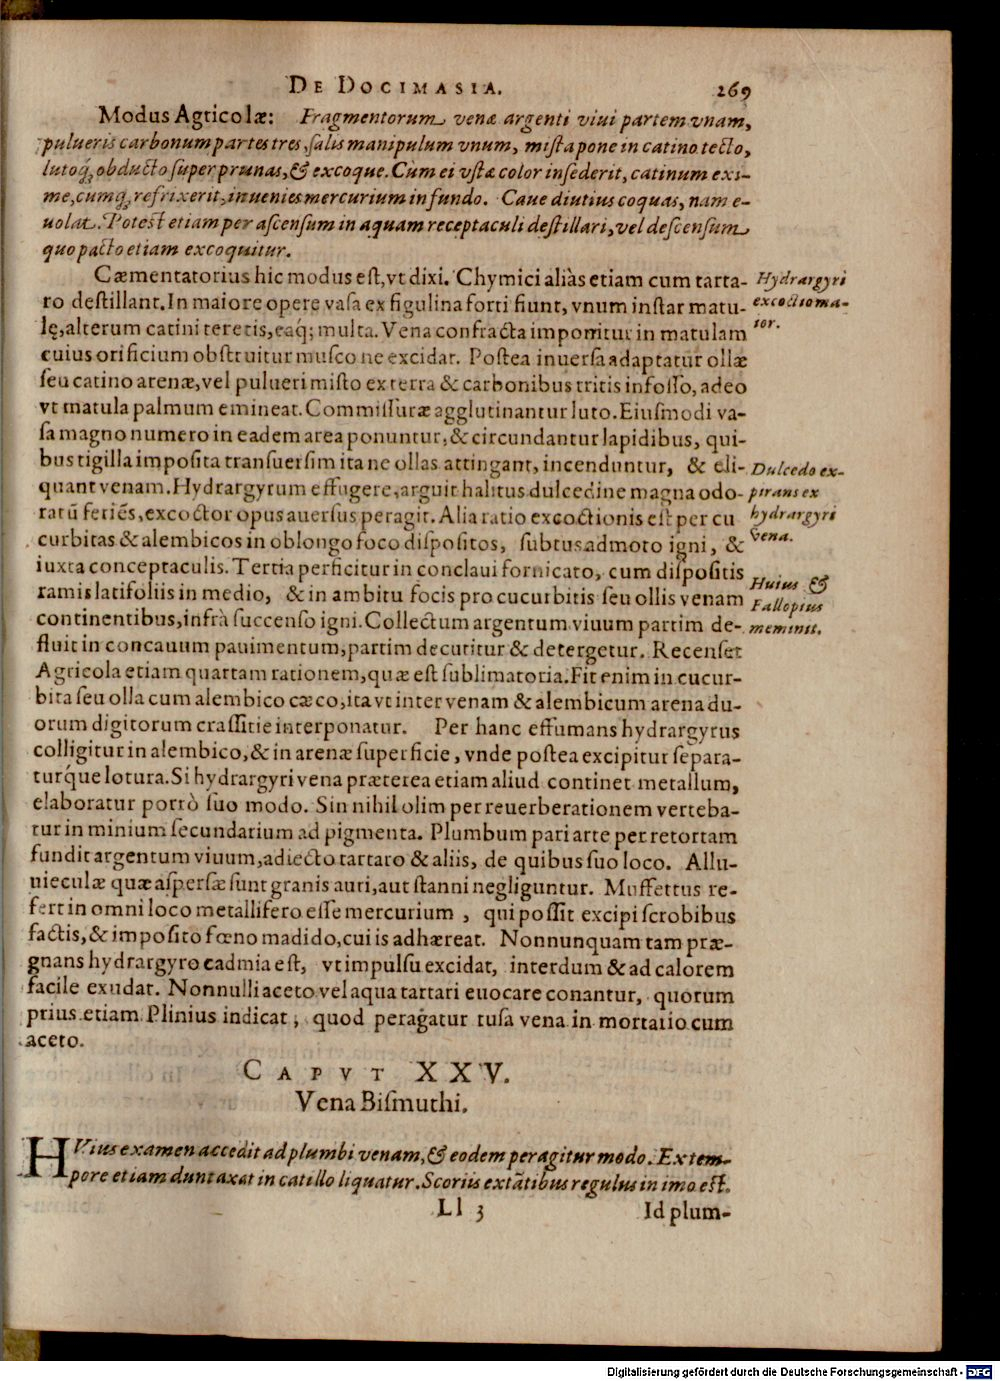 DE DOCIMASIA. 269
Modus Agricolæ: Fragmentorum venæ argenti viui partem vnam,
pulueris carbonum partes tres, ſalis manipulum vnum, miſta pone in catino tecto,
lutoq́; obducto ſuper prunas, & excoque. Cùm ei vſtæ color inſederit, catinum exi-
me, cumq́; refrixerit, inuenies mercurium in fundo. Caue diutius coquas, nam e-
uolat. Poteſt etiam per aſcenſum in aquam receptaculi deſtillari, vel deſcenſum
quo pacto etiam excoquitur.
Cæmentatorius hic modus eſt, vt dixi. Chymici aliàs etiam cum tarta-
ro deſtillant. In maiore opere vaſa ex figulina forti fiunt, vnum inſtar matu-
lę, alterum catini teretis, eaq; multa. Vena confracta imponitur in matulam
cuius orificium obſtruitur muſco ne excidat. Poſtea inuerſa adaptatur ollæ
ſeu catino arenæ, vel pulueri miſto ex terra & carbonibus tritis infoſſo, adeo
vt matula palmum emineat. Commiſſuræ agglutinantur luto. Eiuſmodi va-
ſa magno numero in eadem area ponuntur, & circundantur lapidibus, qui-
bus tigilla impoſita tranſuerſim ita ne ollas attingant, incenduntur, & eli-
quant venam. Hydrargyrum effugere, arguit halitus dulcedine magna odo-
ratū feriēs, excoctor opus auerſus peragit. Alia ratio excoctionis eſt per cu
curbitas & alembicos in oblongo foco diſpoſitos, ſubtus admoto igni, &
iuxta conceptaculis. Tertia perficitur in conclaui fornicato, cum diſpoſitis
ramis latifoliis in medio, & in ambitu focis pro cucurbitis ſeu ollis venam
continentibus, infrà ſuccenſo igni. Collectum argentum viuum partim de-
fluit in concauum pauimentum, partim decutitur & detergetur. Recenſet
Agricola etiam quartam rationem, quæ eſt ſublimatoria. Fit enim in cucur-
bita ſeu olla cum alembico cæco, ita vt inter venam & alembicum arena du-
orum digitorum craſſitie interponatur. Per hanc effumans hydrargyrus
colligitur in alembico, & in arenæ ſuperficie, vnde poſtea excipitur ſepara-
turq́ue lotura. Si hydrargyri vena præterea etiam aliud continet metallum,
elaboratur porrò ſuo modo. Sin nihil olim per reuerberationem verteba-
tur in minium ſecundarium ad pigmenta. Plumbum pari arte per retortam
fundit argentum viuum, adiecto tartaro & aliis, de quibus ſuo loco. Allu-
uieculæ quæ aſperſæ ſunt granis auri, aut ſtanni negliguntur. Muffettus re-
fert in omni loco metallifero eſſe mercurium, qui poſſit excipi ſcrobibus
factis, & impoſito fœno madido, cui is adhæreat. Nonnunquam tam præ-
gnans hydrargyro cadmia eſt, vt impulſu excidat, interdum & ad calorem
facile exudat. Nonnulli aceto vel aqua tartari euocare conantur, quorum
prius etiam Plinius indicat, quod peragatur tuſa vena in mortario cum
aceto.
Hydrargyri
excoctio ma-
ior.
Dulcedo ex-
pirans ex
hydrargyri
vena.
Huius &
Fallopius
meminit.
CAPVT XXV.
Vena Biſmuthi.
HVius examen accedit ad plumbi venam, & eodem peragitur modo. Ex tem-
pore etiam duntaxat in catillo liquatur. Scoriis extātibus regulus in imo eſt.
Ll 3 Id plum-
Digitalisierung gefördert durch die Deutsche Forschungsgemeinschaft - DFG